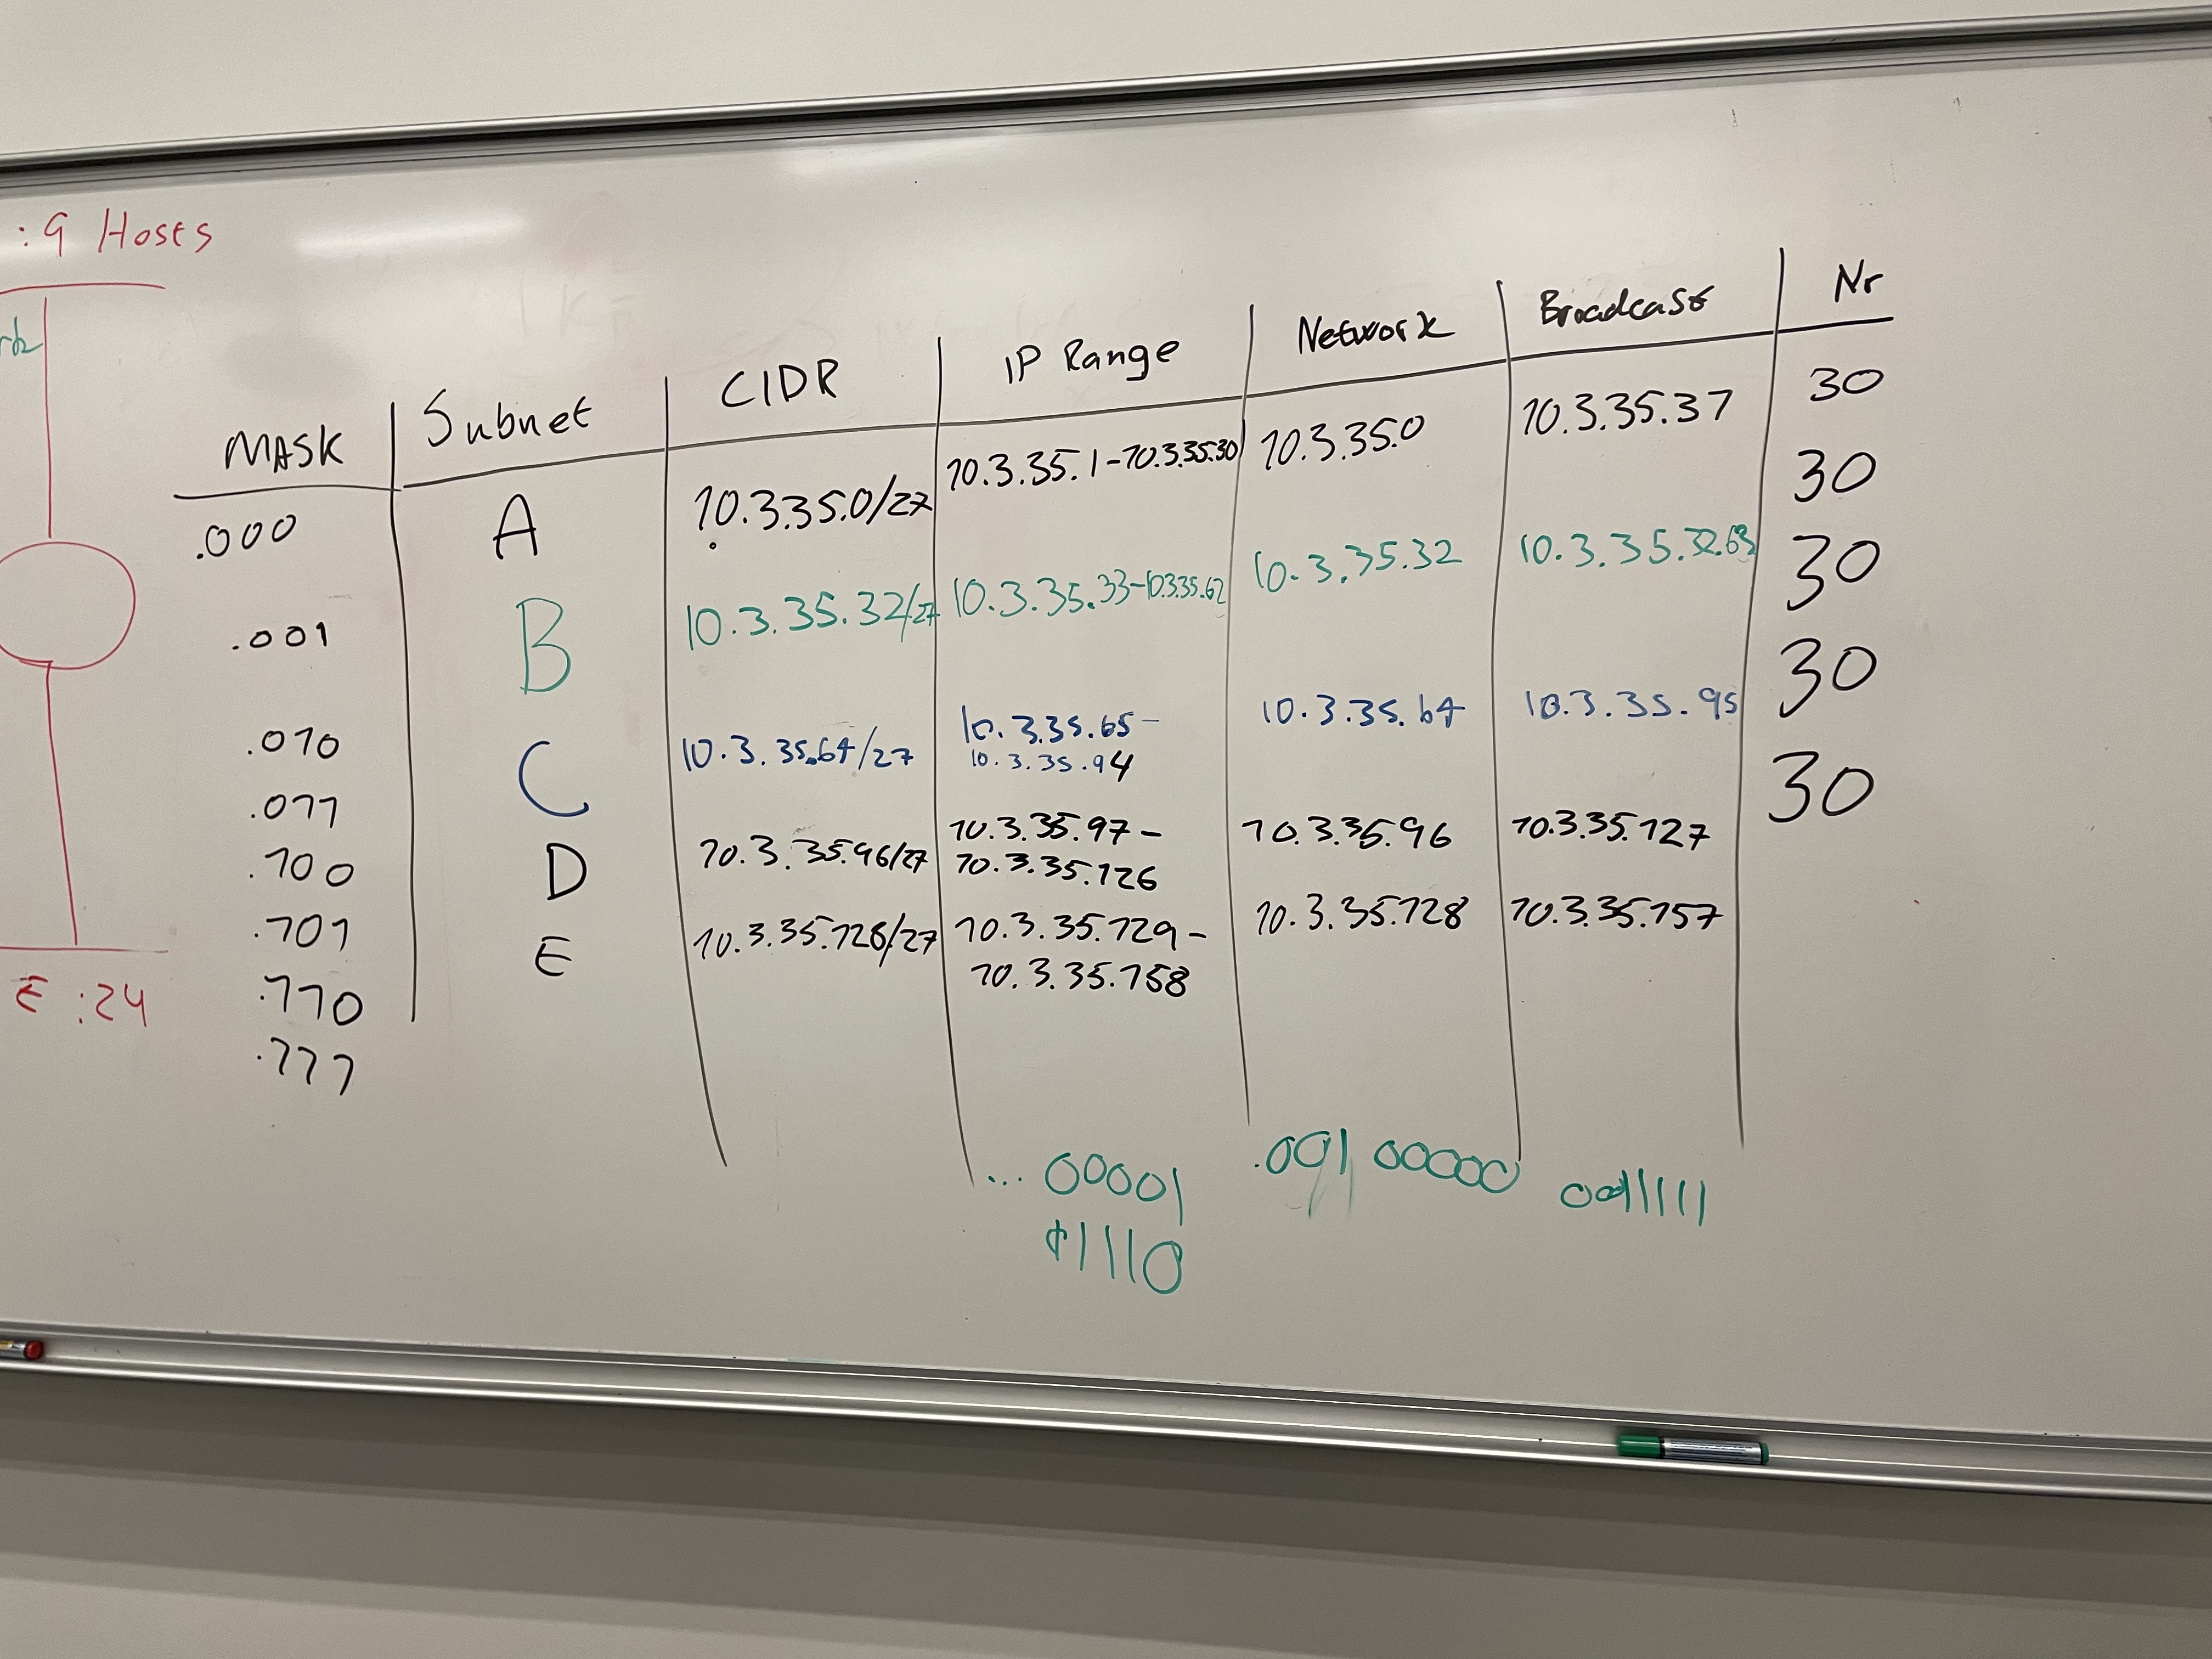 :9 Hosts
MASK Subnet CIDR IP Range Network Broadcast Nr
.000 A 10.3.35.0/27 10.3.35.1-10.3.35.30 10.3.35.0 10.3.35.31 30
.001 B 10.3.35.32/27 10.3.35.33-10.3.35.62 10.3.35.32 10.3.35.32.63 30
.010 C 10.3.35.64/27 10.3.35.65- 10.3.35.64 10.3.35.95 30
10.3.35.94
.011 D 10.3.35.96/27 10.3.35.97- 10.3.35.96 10.3.35.127 30
10.3.35.126
.100 E 10.3.35.128/27 10.3.35.129- 10.3.35.128 10.3.35.157 30
10.3.35.158
.101
.110
.111
E :24
... 00001 .001 00000 0011111
11110